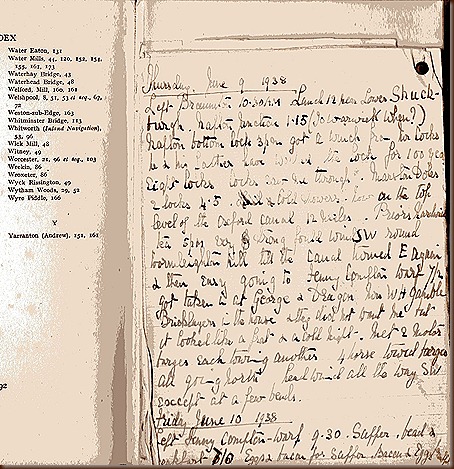 DEX
Water Eaton, 131
Water Mills, 44, 120, 152, 154,
155, 161, 173
Waterhay Bridge, 43
Waterhead Bridge, 48
Welford Mill, 160, 168
Welshpool, 8, 51, 53 et seq., 69,
72
Weston-sub-Edge, 163
Whitminster Bridge, 113
Whitworth (Inland Navigation),
53, 96
Wick Mill, 48
Witney, 49
Worcester, 21, 96 et seq., 103
Wrekin, 86
Wroxeter, 86
Wyck Rissington, 49
Wytham Woods, 29, 52
Wyre Piddle, 166
Y
Yarranton (Andrew), 151, 161
92
Thursday, June 9 1938
Left Braunston 10.30am Lunch 12 pm Lower Shuck-
burgh. Napton Junction 1.15 (To Warwick when?)
Napton bottom lock 3pm got a
his father have been at the lock for 100 years
Eight locks "through". Marston Doles
2 locks 4.5 & cold showers. now on the top
level of the Oxford Canal 12 miles. Priors Hardwick
tea 5pm very strong cold wind SW round
Wormleighton hill till the canal turned E again
& then easy going to Fenny Compton Warf 7pm
got taken in at George & Dragon Mrs W H Gamble
Bricklayers in the house & they did not want me but
it looked like a flat & a cold night. Met 2 motor
barges each towing another 4 horse towed barges
all going north head wind all the way SW
except at a few bends.
Friday June 10 1938
Left Fenny Compton Warf 9-30. Supper, bed &
breakfast 5/6 Eggs & bacon for supper. Bacon & Eggs